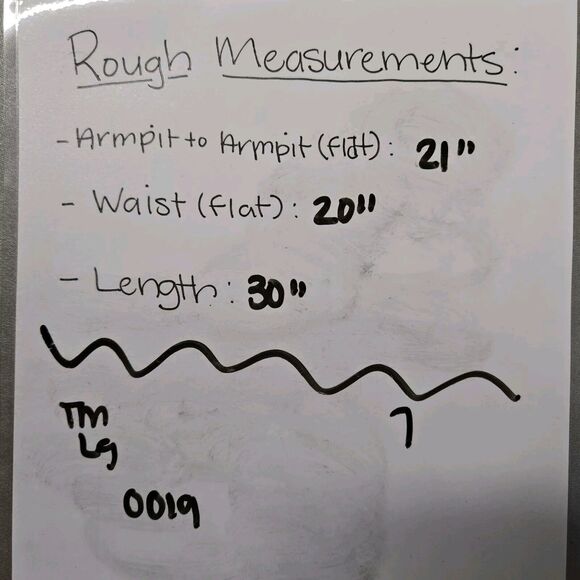 Rough Measurements:
- Armpit to Armpit (flat): 21"
- Waist (flat): 20"
- Length: 30"
TM 7
Lg
0019